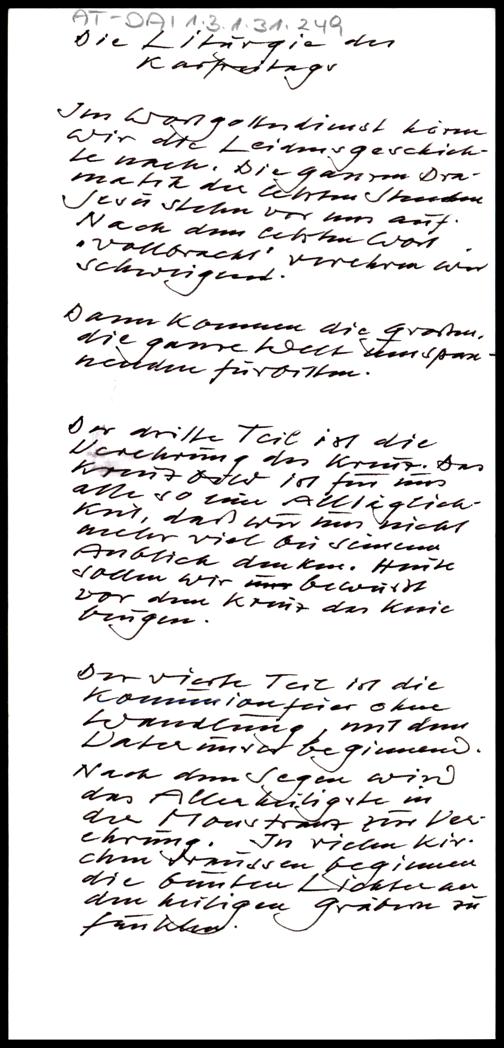 AT-DAI 1.3.1.31.249
Die Liturgie des
Karfreitags
Im Wortgottesdienst hören
wir die Leidensgeschich-
te nach. Die ganze Dra-
matik der letzten Stunden
Jesu stehn vor uns auf.
Nach dem letzten Wort
"vollbracht" verehren wir
schweigend.
Dann kommen die großen,
die ganze Welt umspan-
nenden Fürbitten.
Der dritte Teil ist die
Verehrung des Kreuz. Das
Kreuzbild ist für uns
alle so eine Alltäglich-
keit, daß wir uns nicht
mehr viel bei seinem
Anblick denken. Heute
sollen wir bewußt
vor dem Kreuz das Knie
beugen.
Der vierte Teil ist die
Kommunionfeier ohne
Wandlung, mit dem
Vater unser beginnend.
Nach dem Segen wird
das Allerheiligste in
der Monstranz zur Ver-
ehrung. In vielen Kir-
chen draussen beginnen
die bunten Lichter an
den heiligen Gräbern zu
funkeln.